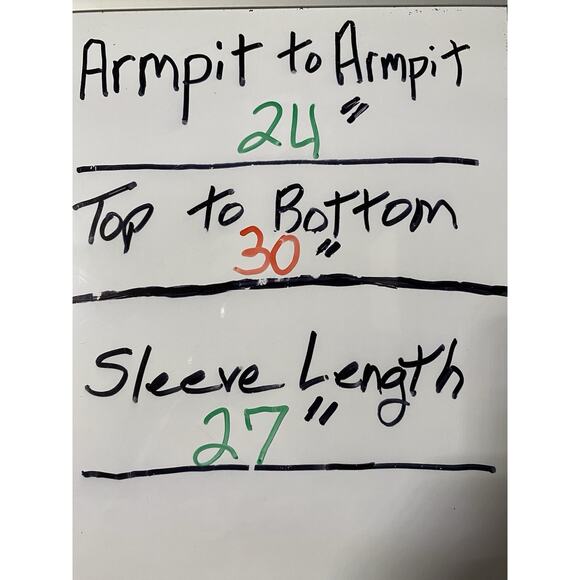 Armpit to Armpit
24"
Top to Bottom
30"
Sleeve Length
27"